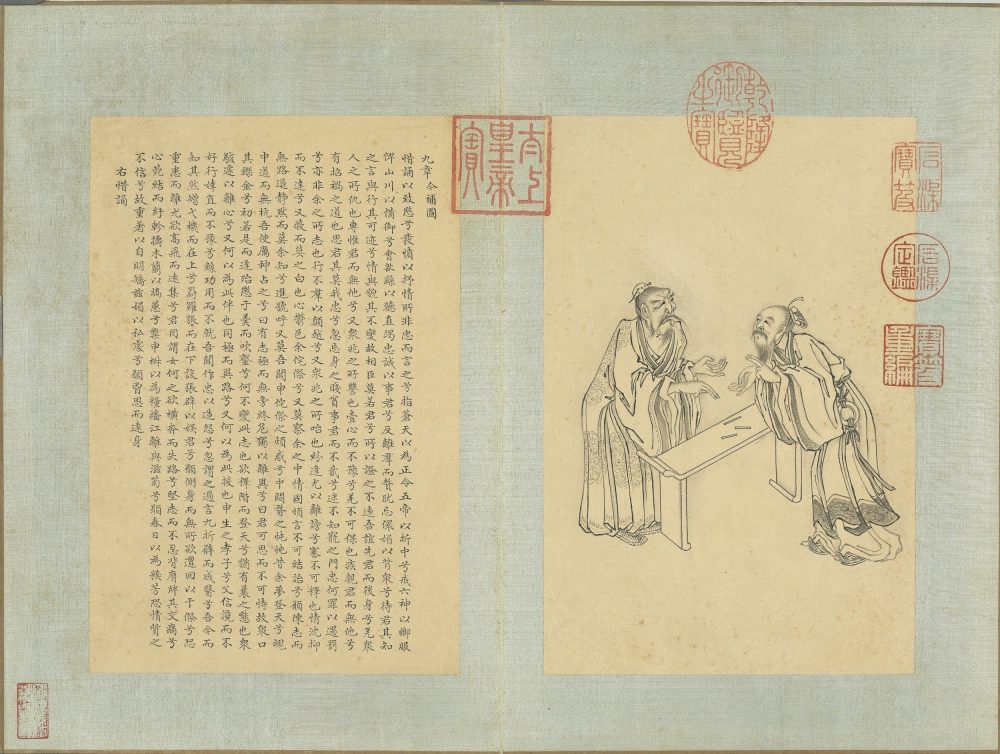 九章今補圖
惜誦以致愍兮發憤以抒情所非忠而言之兮指蒼天以為正令五帝以折中兮戒六神以嚮服
俾山川以備御兮會咎繇以聽直竭忠誠以事君兮反離羣而贅肬忘儇媚以背衆兮待君其知
之言與行其可迹兮情與貌其不變故相臣莫若君兮所以證之不遠吾誼先君而後身兮羌衆
人之所仇也專惟君而無他兮又衆兆之所讐也壹心而不豫兮羌不可保也疾親君而無他兮
有招禍之道也思君其莫我忠兮忽忘身之賤貧事君而不貳兮迷不知寵之門忠何罪以遇罰
兮亦非余之所志也行不羣以顛越兮又衆兆之所咍也紛逢尤以離謗兮謇不可釋也情沈抑
而不達兮又蔽而莫之白也心鬱邑余侘傺兮又莫察余之中情固煩言不可結詒兮願陳志而
無路退静默而莫余知兮進號呼又莫吾聞申侘傺之煩惑兮中悶瞀之忳忳昔余夢登天兮魂
中道而無杭吾使厲神占之兮曰有志極而無旁終危獨以離異兮曰君可思而不可恃故衆口
其鑠金兮初若是而逢殆懲于羹而吹䪠兮何不變此志也欲釋階而登天兮猶有曩之態也衆
駭遽以離心兮又何以為此伴也同極而異路兮又何以為此援也申生之孝子兮父信讒而不
好行婞直而不豫兮鯀功用而不就吾聞作忠以造怨兮忽謂之過言九折臂而成醫兮吾今而
知其然矰弋機而在上兮罻羅張而在下設張辟以娛君兮願側身而無所欲儃回以干傺兮恐
重患而離尤欲高飛而遠集兮君罔謂女何之欲橫奔而失路兮堅志而不忍背膺胖其交痛兮
心鬱結而紆軫擣木蘭以矯蕙兮糳申椒以為糧播江離與滋菊兮願春日以為糗芳恐情質之
不信兮故重著以自明矯茲媚以私處兮願曾思而遠身
右惜誦
太上皇帝之寶
乾隆御覽之寶
石渠寶笈
石渠定鑑
寶笈重編